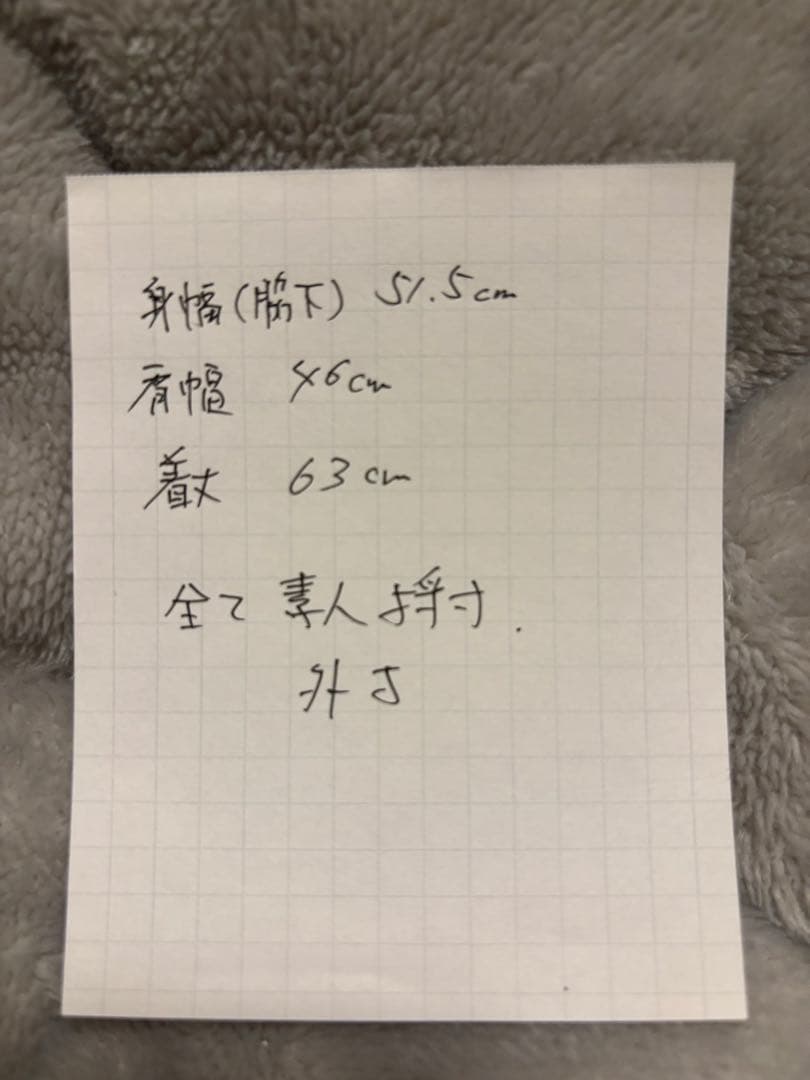 身幅(脇下) 51.5cm
肩幅 46cm
着丈 63cm
全て 素人採寸.
外寸